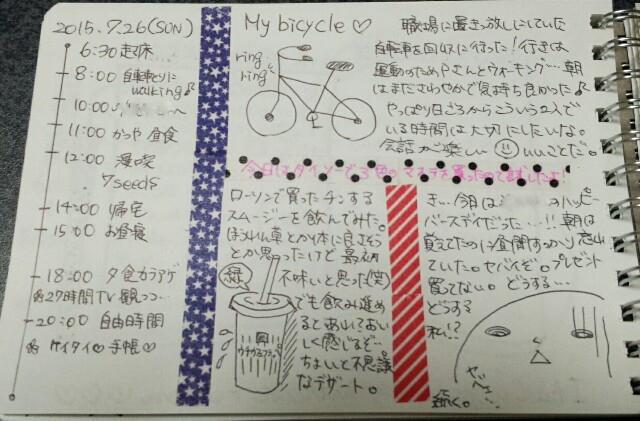 2015.7.26(SUN)
6:30 起床
8:00 自転車とりに
walking♪
10:00
11:00 かつや 昼食
12:00 漫喫
7seeds
14:00 帰宅
15:00 お昼寝
18:00 夕食カラアゲ
27時間TV 観つつ…
20:00 自由時間
ケイタイ♡手帳♡
My bicycle ♡
ring
ring
職場に置きっ放しにしていた
自転車を回収に行った!行きは
運動のためPさんとウォーキング…朝
はまださわやかで気持ち良かった♪
やっぱり日ごろからこういう2人で
いる時間は大切にしたいな。
会話が楽しい いいことだ。
今日はダイソーで3色のマステを買ったので試したよ!
ローソンで買ったチンする
スムージーを飲んでみた。
ほうれん草とか体に良さそう
とか思ったけど 最初
不味いと思った(笑)
緑
でも飲み進め
るとあれ?おい
しく感じるぞ…
ちょいと不思議
なデザート。
き…今日は のハッピー
バースデイだった…!!朝は
覚えてたのに昼間すっかり忘れ
ていた。ヤバイぞ。プレゼント
買ってない。どうする…
どうする
私!?
ヤッベェ
続く。